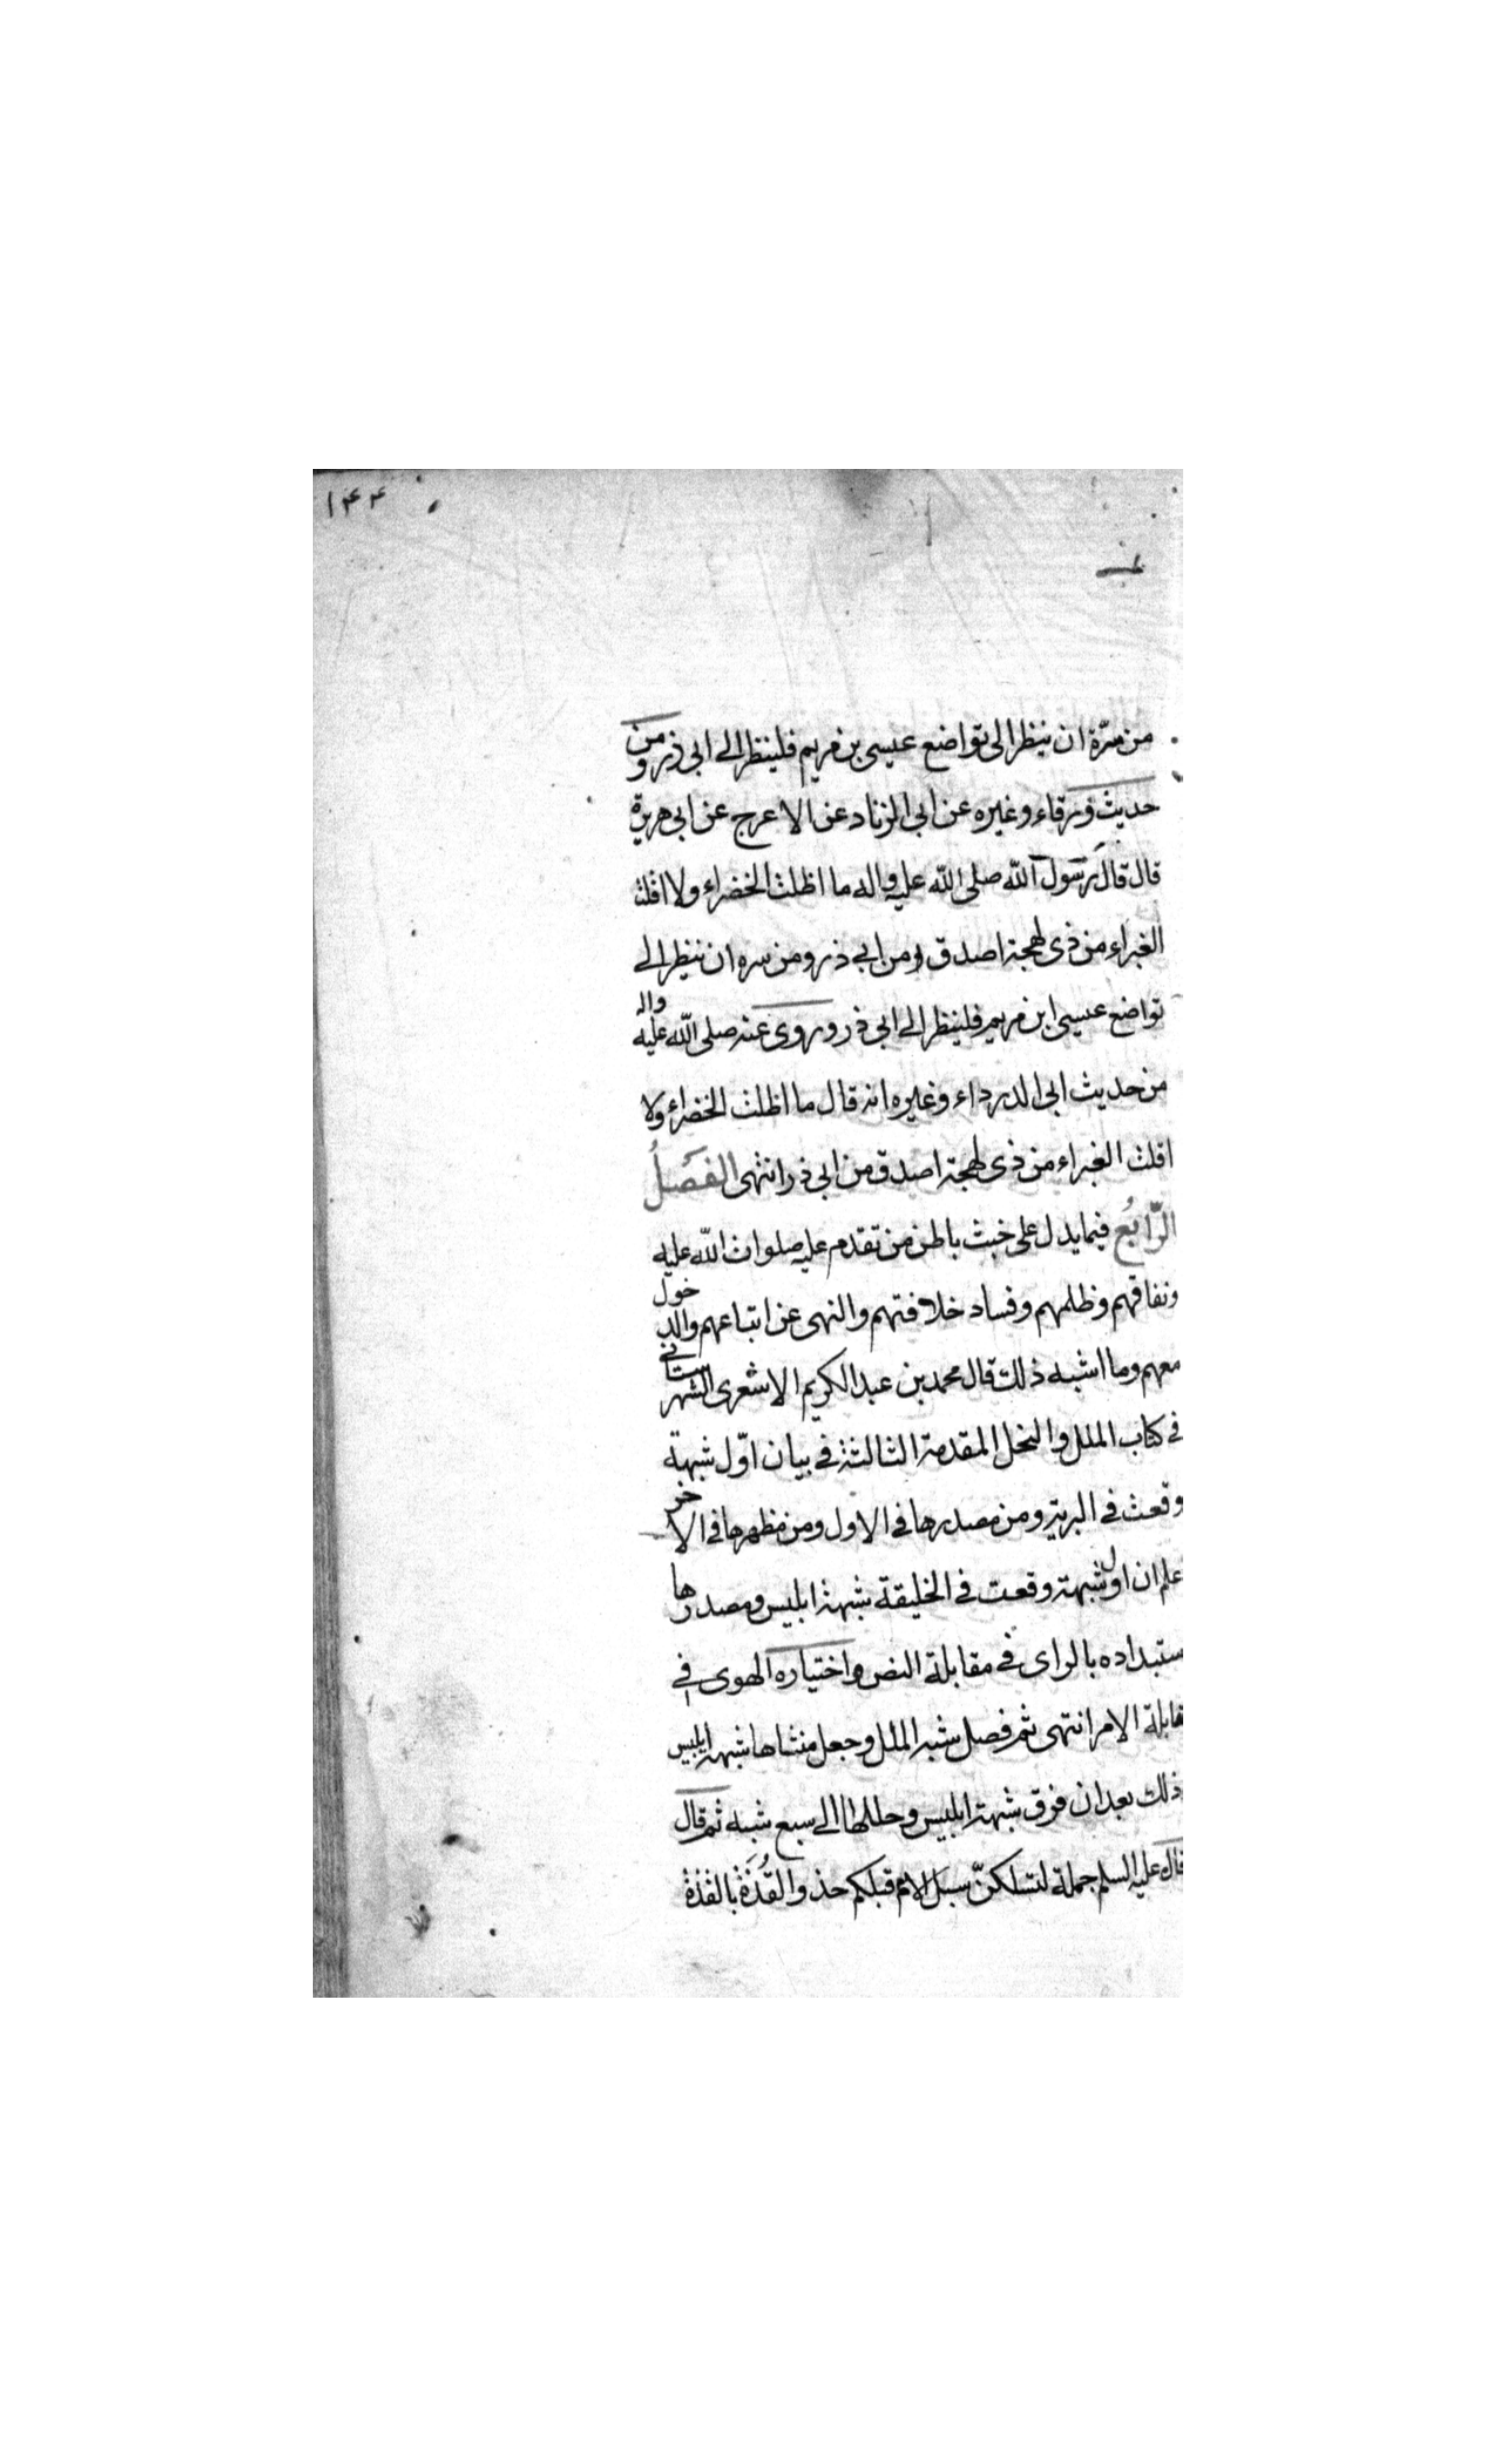 ١٤٤
من سرّة ان ينظر الى تواضع عيسى بن مريم فلينظر الى ابى ذر ومن
حديث ورقاء وغيره عن ابى الزناد عن الاعرج عن ابى هريرة
قال قال رسول الله صلى الله عليه واله ما اظلت الخضراء ولا اقلت
الغبراء من ذى لهجة اصدق من ابى ذر ومن سره ان ينظر الى
تواضع عيسى ابن مريم فلينظر الى ابى ذر وروى عنه صلى الله عليه واله
من حديث ابى الدرداء وغيره انه قال ما اظلت الخضراء ولا
اقلت الغبراء من ذى لهجة اصدق من ابى ذر انتهى الفَصلُ
الرّابعُ فيما يدل على خبث باطن من تقدم عليه صلوات الله عليه
ونفاقهم وظلمهم وفساد خلافتهم والنهى عن اتباعهم والدخول
معهم وما اشبه ذلك قال محمد بن عبد الكريم الاشعرى الشهرستانى
فى كتاب الملل والنحل المقدمة الثالثة فى بيان اوّل شبهة
وقعت فى البرية ومن مصدرها فى الاول ومن مظهرها فى الاخر
علم ان اول شبهة وقعت فى الخليقة شبهة ابليس ومصدرها
ستبداده بالراى فى مقابلة النص واختياره الهوى فى
قابلة الامر انتهى ثم فصل شبه الملل وجعل منشاها شبهة ابليس
ذلك بعد ان فرق شبهة ابليس وحللها الى سبع شبه ثم قال
قال عليه السلم جملة لتسلكنّ سبل الامم قبلكم حذو القُذَة بالقذة